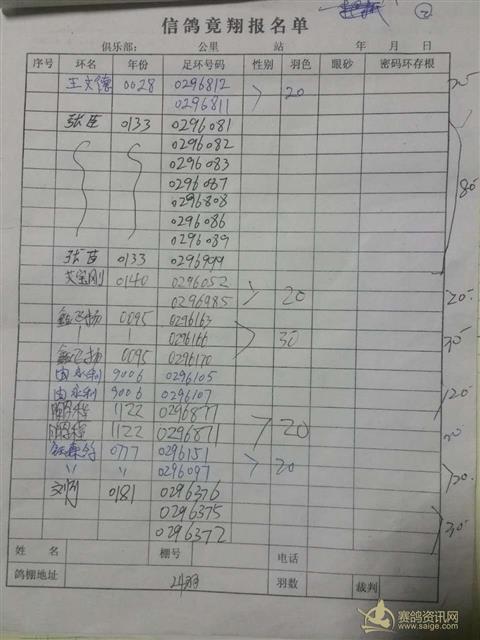 ②
信鸽竟翔报名单
俱乐部： 公里 站 年 月 日
序号 环名 年份 足环号码 性别 羽色 眼砂 密码环存根
王文德 0028 0296812 20
0296811
张臣 0133 0296081
0296082
0296083
0296087
0296808
0296086
0296089
80
张苗 0133 0296999
艾宝刚 0140 0296052
0296985 20 20
0095 0296163
0296166 30 30
0095 0296170
由永利 9006 0296105
由永利 9006 0296107
1122 0296877
1122 0296871 20
0777 0296151
〃 0296097 20
刘 0181 0296376
0296375
0296372
姓 名 棚号 电话
鸽棚地址 24羽 羽数 裁判
赛鸽资讯网
www.saige.com